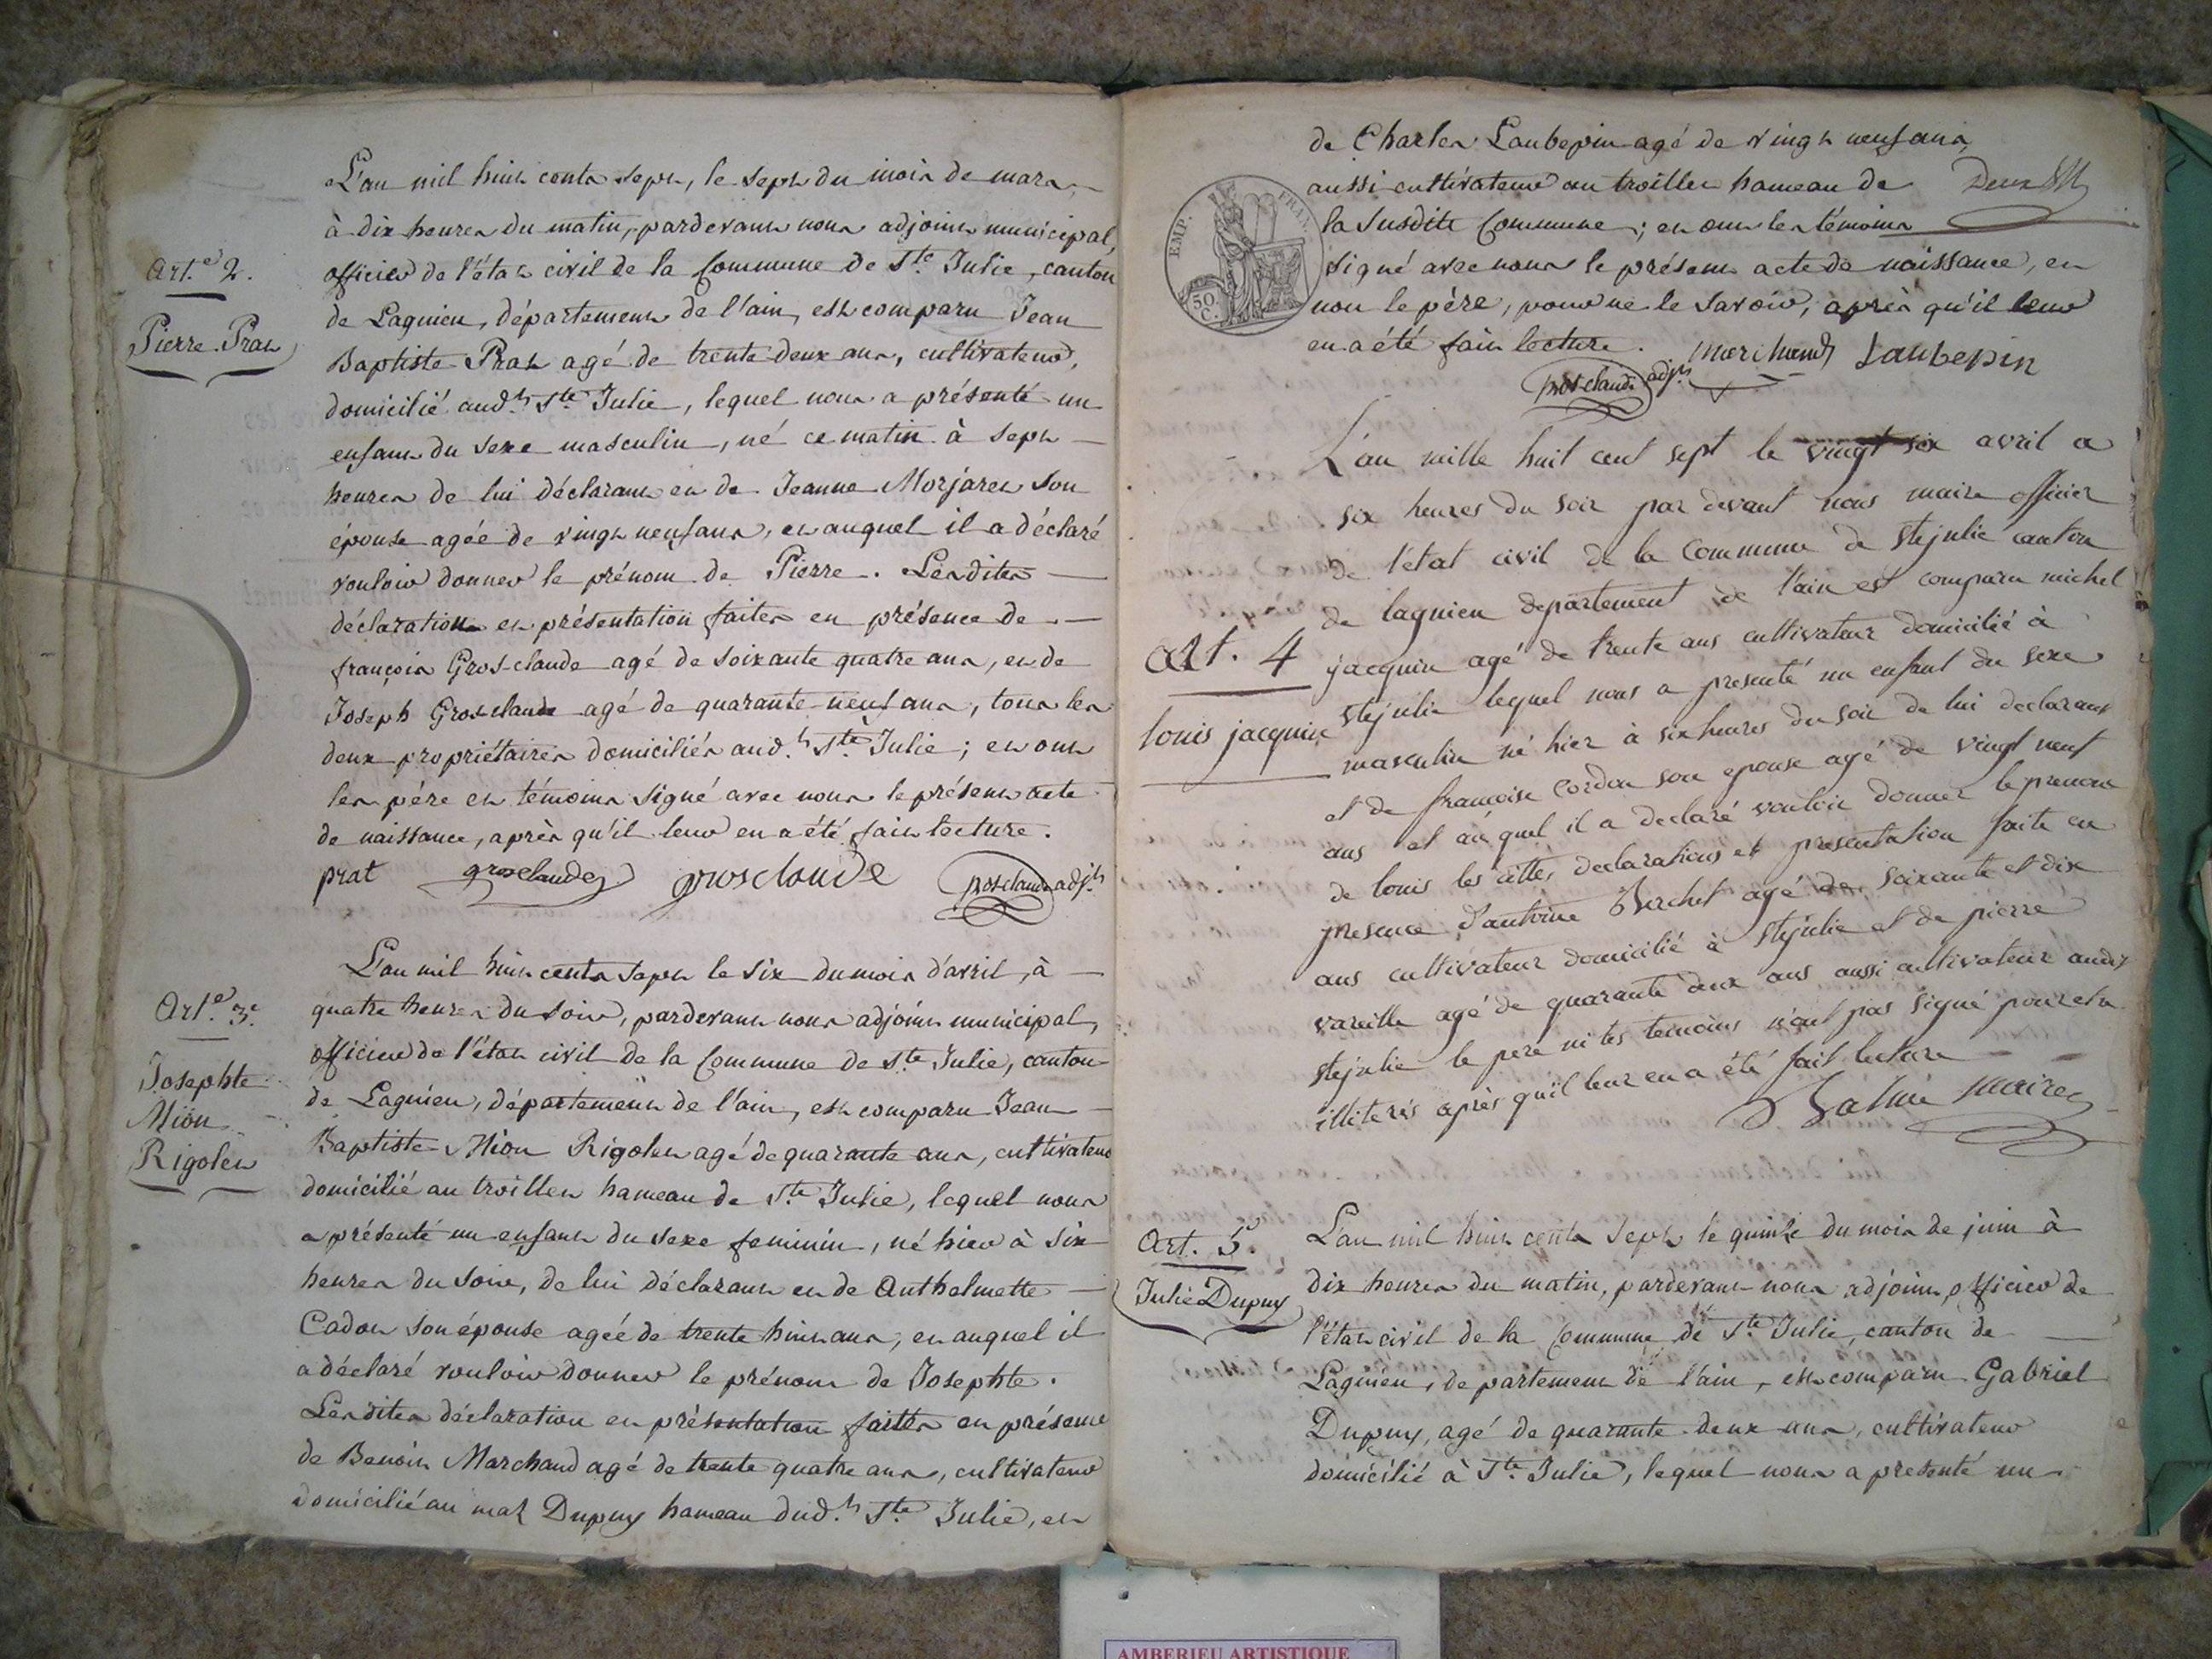 Art.e 2.
Pierre Prat
L'an mil huit cents sept, le sept du mois de mars,
à dix heures du matin, pardevant nous adjoint municipal,
officier de l'état civil de la Commune de Ste Julie, canton
de Lagnieu, département de l'ain, est comparu Jean
Baptiste Prat agé de trente deux ans, cultivateur,
domicilié aud.t Ste Julie, lequel nous a présenté un
enfant du sexe masculin, né ce matin à sept
heures de lui déclarant et de Jeanne Morjaret son
épouse agée de vingt neuf ans, et auquel il a déclaré
vouloir donner le prénom de Pierre. Lesdites
déclaration et présentation faites en présence de
françois Gros-claude agé de soixante quatre ans, et de
Joseph Gros-claude agé de quarante neuf ans, tous les
deux propriétaires domiciliés aud.t Ste Julie; et ont
les père et témoins signé avec nous le présent acte
de naissance, après qu'il leur en a été fait lecture.
prat grosclaude grosclaude grosclaude adj.t
Art.e 3.e
Josephte
Mion
Rigolet
L'an mil huit cents sept le six du mois d'avril, à
quatre heures du soir, pardevant nous adjoint municipal,
officier de l'état civil de la Commune de Ste Julie, canton
de Lagnieu, département de l'ain, est comparu Jean
Baptiste Mion Rigolet agé de quarante ans, cultivateur
domicilié au troillet hameau de Ste Julie, lequel nous
a présenté un enfant du sexe feminin, né hier à six
heures du soir, de lui déclarant et de Anthelmette
Cadot son épouse agée de trente huit ans, et auquel il
a déclaré vouloir donner le prénom de Josephte.
Lesdites déclaration et présentation faites en présence
de Benoit Marchand agé de trente quatre ans, cultivateur
domicilié au mas Dupuy hameau dud.t Ste Julie, et
de Charles Laubepin agé de vingt neuf ans,
aussi cultivateur au troillet hameau de
la susdite Commune; et ont les témoins
signé avec nous le présent acte de naissance, et
non le père, pour ne le savoir, après qu'il leur
en a été fait lecture.
marchand Laubepin
grosclaude adj.t
EMP. FRAN.
50.
C.
L'an mille huit cent sept le vingt six avril a
six heures du soir par devant nous maire officier
de l'état civil de la Commune de stejulie canton
de lagnieu departement de l'ain est comparu michel
Art. 4
louis jacquin
jacquin agé de trente ans cultivateur domicilié à
stejulie lequel nous a presenté un enfant du sexe
masculin né hier à six heures du soir de lui declarant
et de francoise Cordon son epouse agé de vingt neuf
ans et auquel il a declaré vouloir donner le prenom
de louis les dittes declarations et presentation faite en
presence d'antoine Berchet agé de soixante et dix
ans cultivateur domicilié à stejulie et de pierre
vareille agé de quarante deux ans aussi cultivateur audit
stejulie le pere ni les temoins n'ont pas signé pour etre
illiterés après qu'il leur en a été fait lecture
maire
Art. 5.
Julie Dupuy
L'an mil huit cents sept le quinze du mois de juin à
dix heures du matin, pardevant nous adjoint, officier de
l'état civil de la Commune de Ste Julie, canton de
Lagnieu, departement de l'ain, est comparu Gabriel
Dupuy, agé de quarante-deux ans, cultivateur
domicilié à Ste Julie, lequel nous a presenté un
AMBERIEU ARTISTIQUE